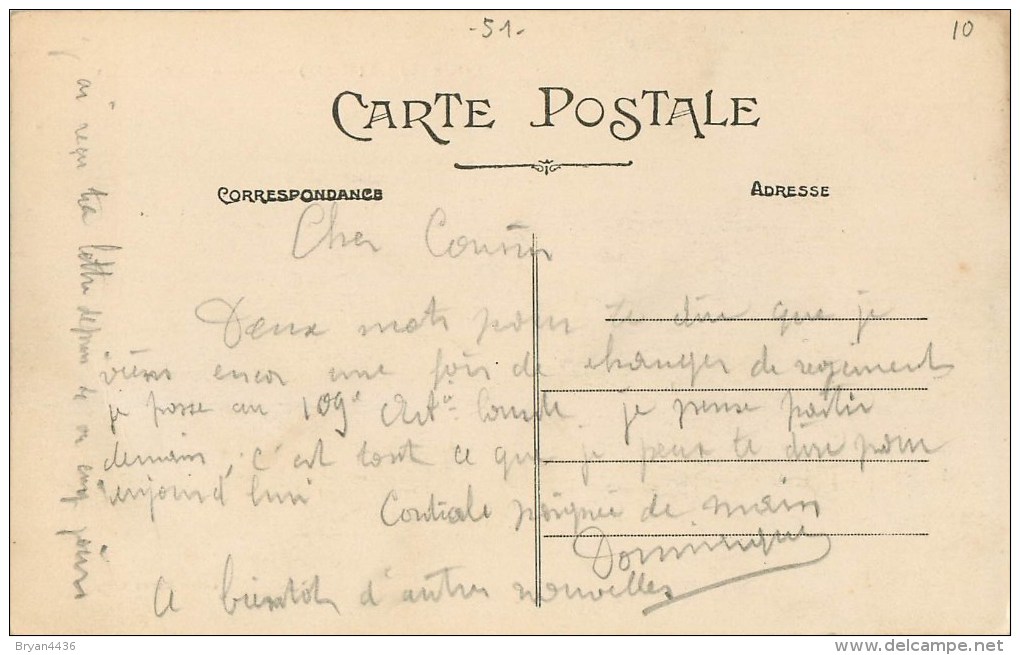 -51-
10
CARTE POSTALE
CORRESPONDANCE
ADRESSE
Cher Cousin
Deux mots pour te dire que je
viens encor une fois de changer de regiment
je passe au 109e Artie Lourde je pense partir
demain, c'est tout ce que je peux te dire pour
aujourd'hui
Cordiale poignée de main
Dominique
A bientôt d'autres nouvelles
j'ai reçu ta lettre depuis 4 ou cinq jours
Bryan4436
delcampe.net